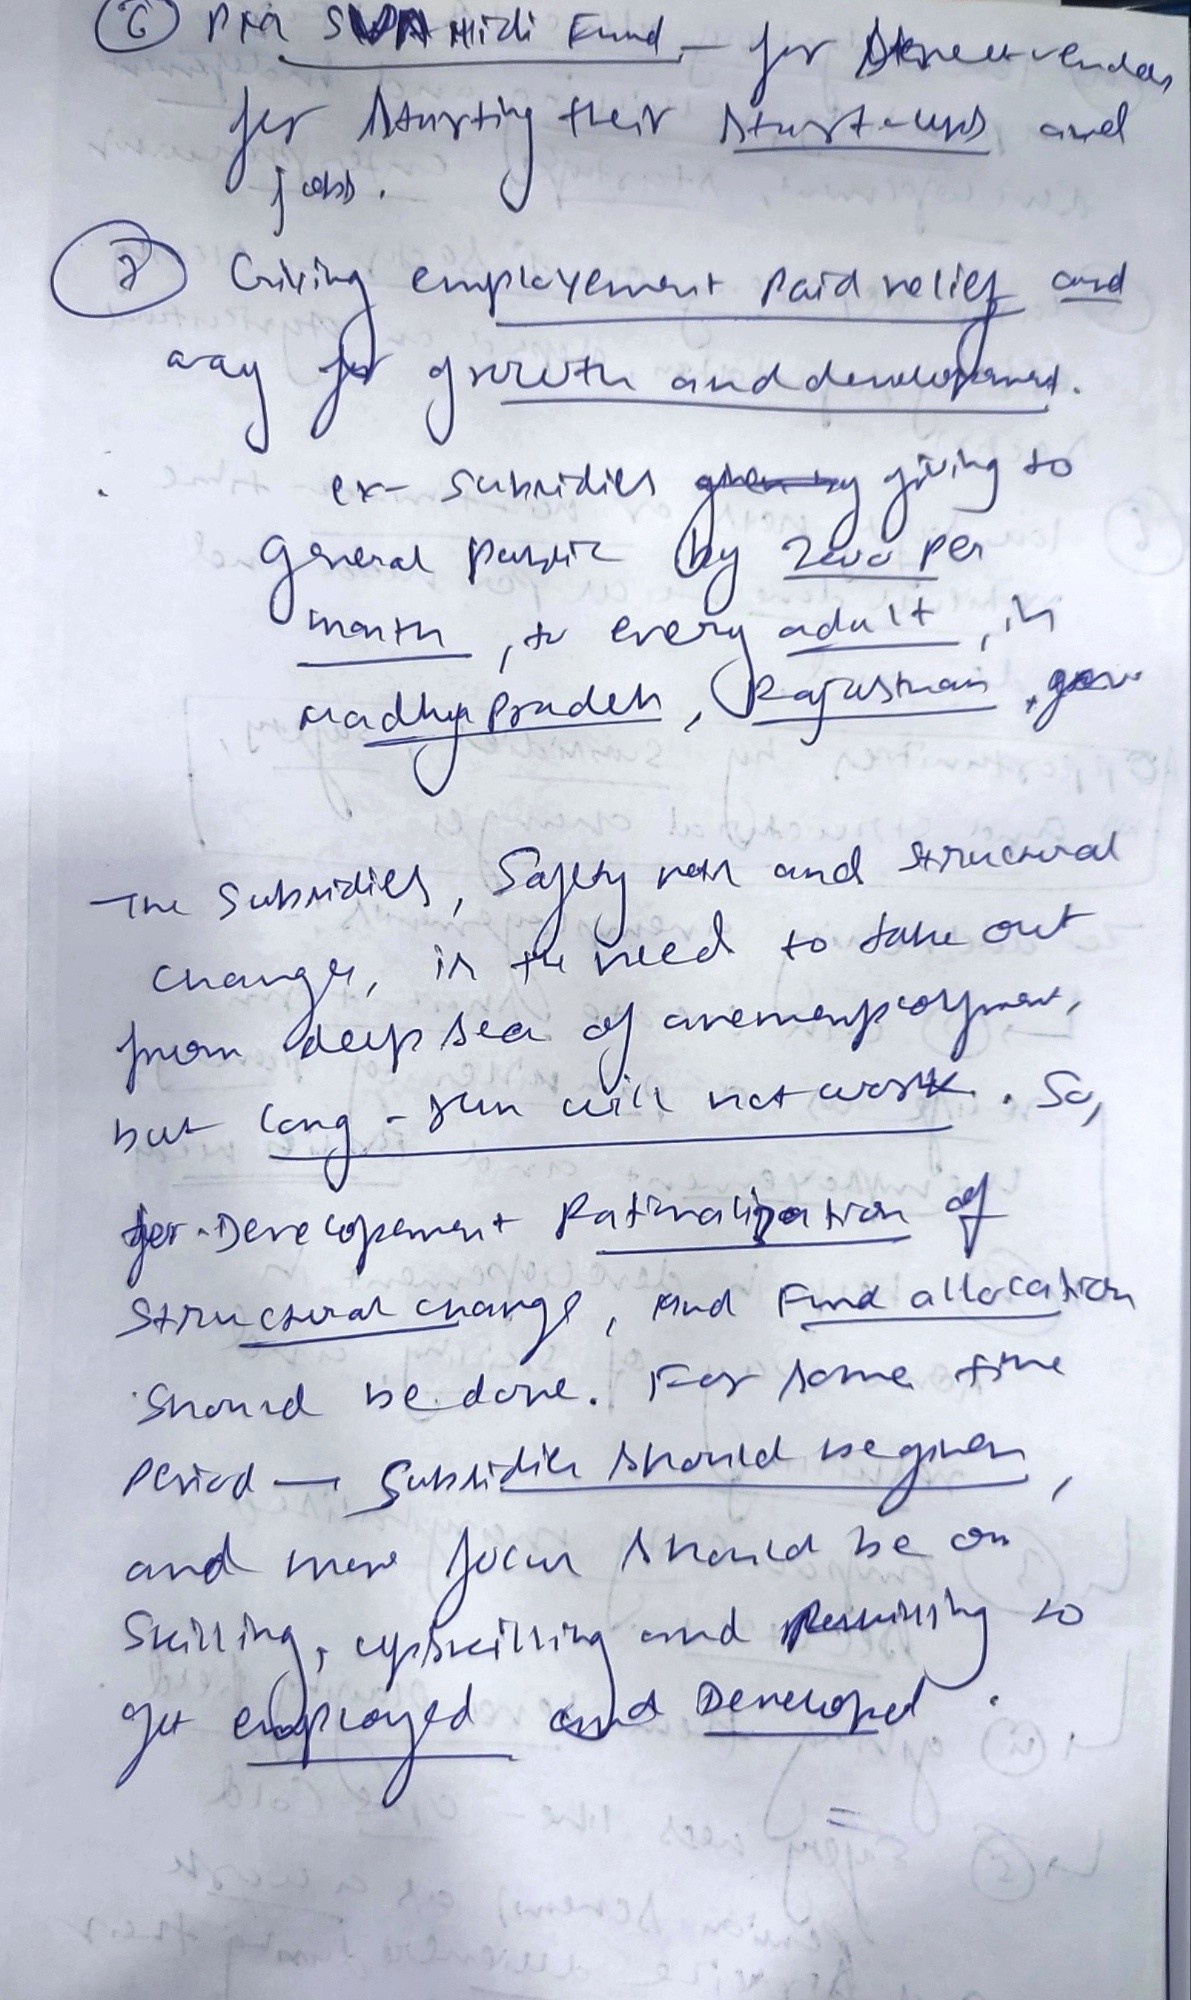 ⑥ PM SVANidi Fund - for street vendors
for starting their start-ups and
jobs.
⑦ Giving employement paid relief and
way for growth and development.
ex- subsidies giving to
general public by 2000 per
month, to every adult, in
Madhya Pradesh, Rajasthan, gov
The Subsidies, Safety nets and structural
changes, is the need to take out
from deep sea of
but long-run will not work. So,
for Developement Rationalization of
Structural change, and Fund allocation
should be done. For some time
Period — Subsidies should be given,
and more focus should be on
Skilling, upskilling and Reskilling to
get employed and Developed.